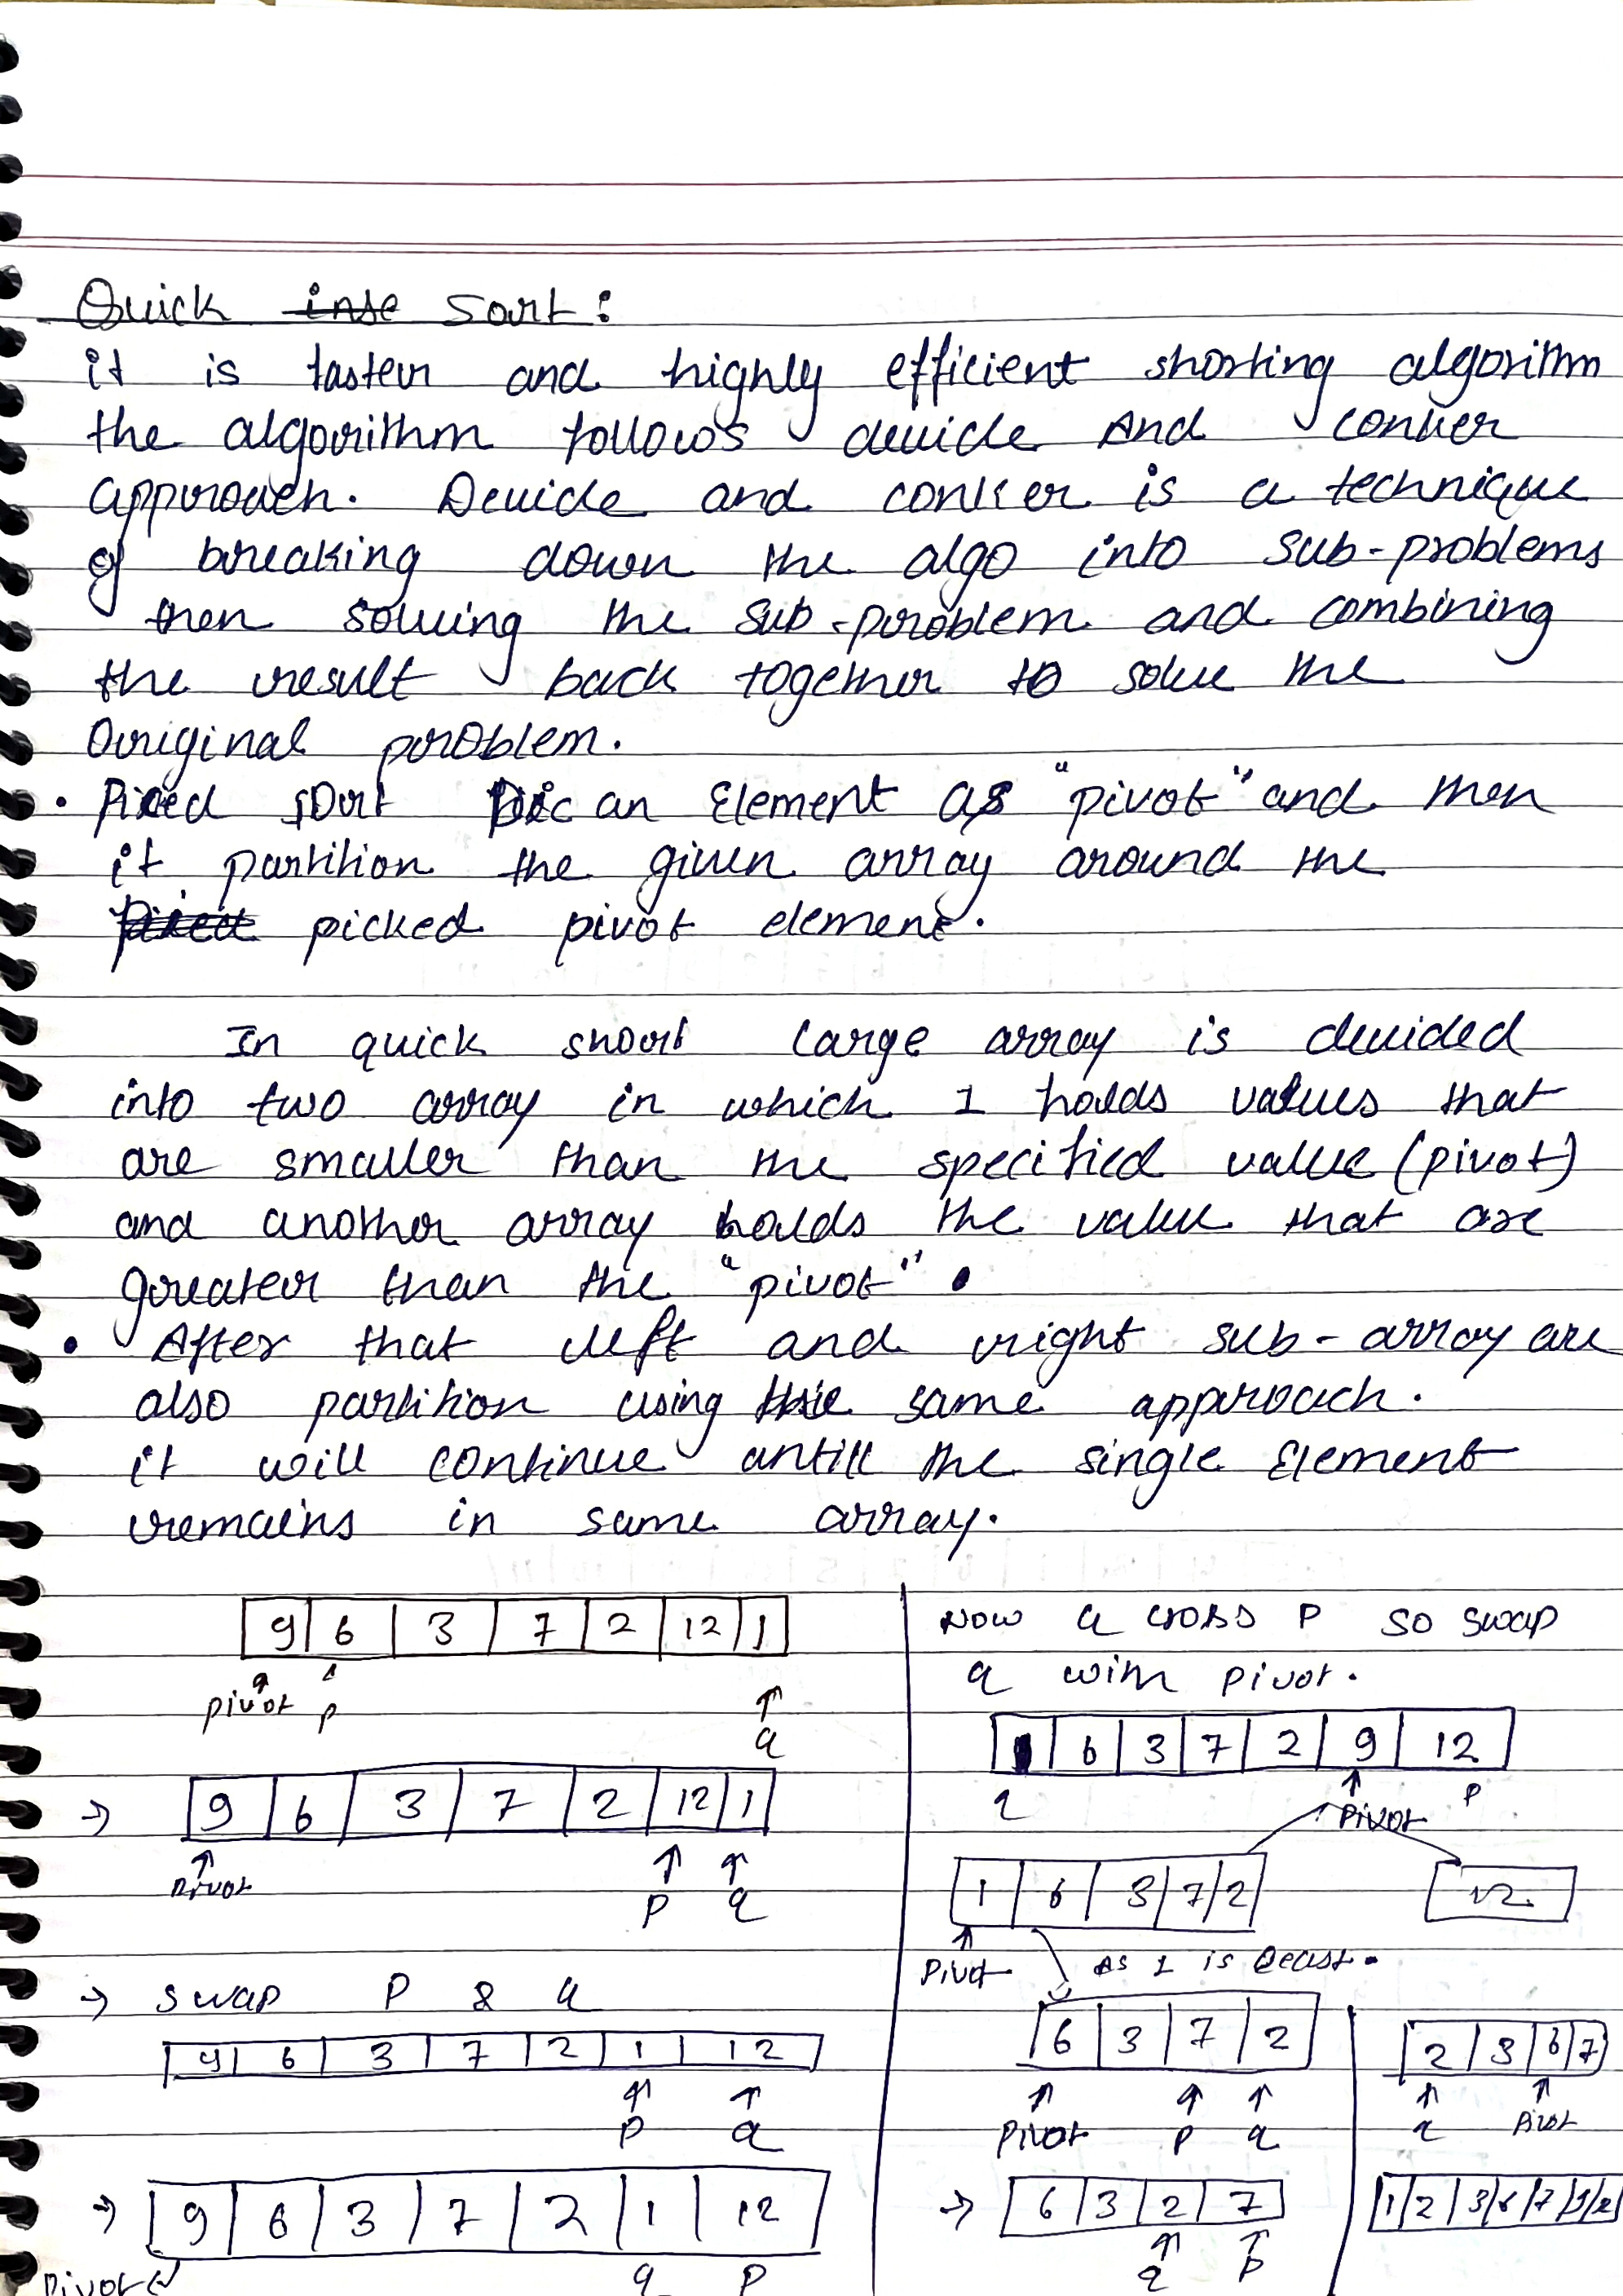 Quick inse Sort:
it is faster and highly efficient shorting algorithm
the algorithm follows devide And conker
approach. Devide and conker is a technique
of breaking down the algo into sub-problems
then solving the sub-problem and combining
the result back together to solve the
Original problem.
• sort an Element as "pivot" and then
it partition the given array around the
picked pivot element.
In quick short large array is devided
into two array in which 1 holds values that
are smaller than the specified value (pivot)
and another array holds the value that are
greater than the "pivot".
• After that left and right sub-array are
also partition using the same approach.
it will continue antill the single Element
remains in same array.
9 6 3 7 2 12 1
pivot p
q
→ 9 6 3 7 2 12 1
pivot p q
→ swap P & q
9 6 3 7 2 1 12
p q
→ 9 6 3 7 2 1 12
Pivot q p
Now q cross P so swap
q with pivot.
1 6 3 7 2 9 12
q pivot p
1 6 3 7 2 12
Pivot As 1 is least.
6 3 7 2
pivot p q
→ 6 3 2 7
q p
2 3 6 7
q pivot
1 2 3 6 7 9 12